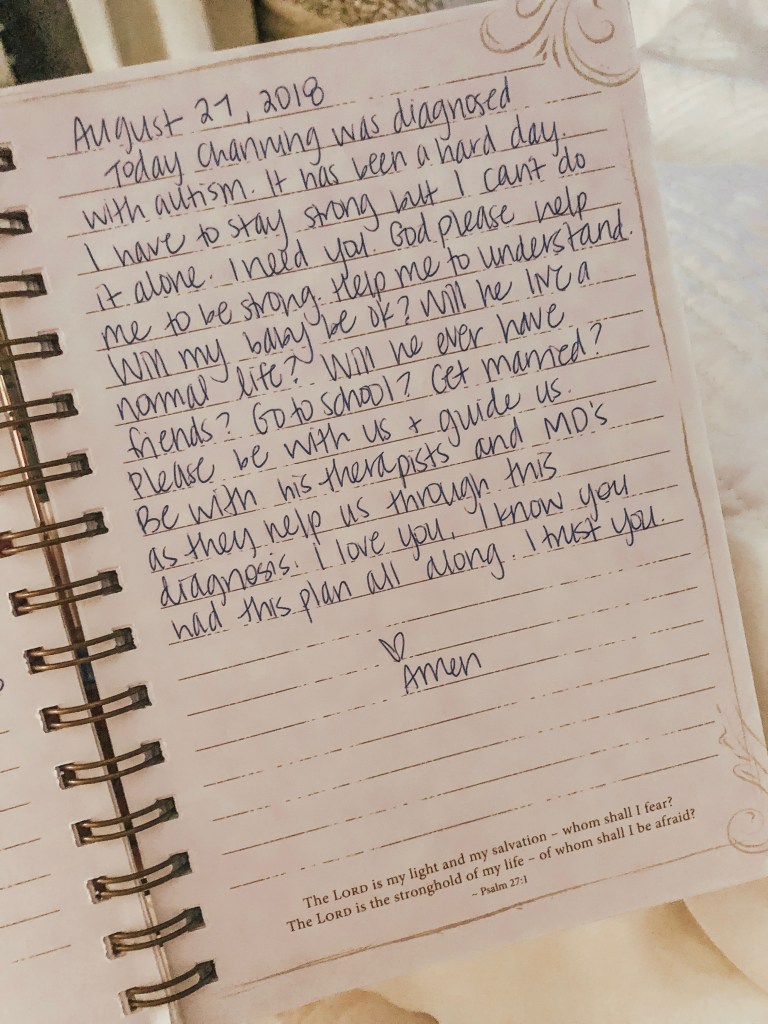 August 27, 2018
Today Channing was diagnosed
with autism. It has been a hard day.
I have to stay strong but I can't do
it alone. I need you God please help
me to be strong. Help me to understand.
Will my baby be ok? Will he live a
normal life? Will he ever have
friends? Go to school? Get married?
Please be with us + guide us.
Be with his therapists and MD's
as they help us through this
diagnosis. I love you. I know you
had this plan all along. I trust you.
♡
Amen
The LORD is my light and my salvation – whom shall I fear?
The LORD is the stronghold of my life – of whom shall I be afraid?
– Psalm 27:1